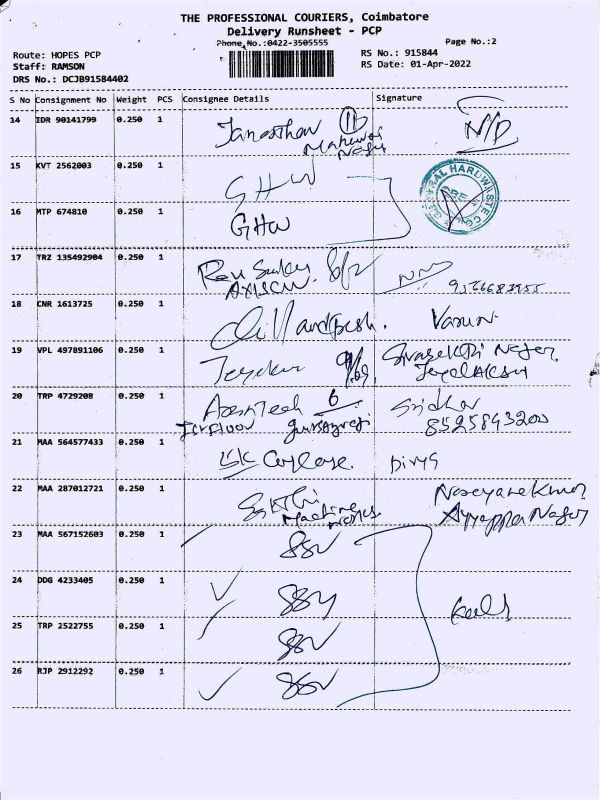 THE PROFESSIONAL COURIERS, Coimbatore
Delivery Runsheet - PCP
Phone No.:0422-3505555
Page No.:2
Route: HOPES PCP
RS No.: 915844
Staff: RAMSON
RS Date: 01-Apr-2022
DRS No.: DCJB91584402
S No Consignment No Weight PCS Consignee Details Signature
14 IDR 90141799 0.250 1 11 N/D
Nagar
15 KVT 2562003 0.250 1 GHW
16 MTP 674810 0.250 1 GHW
17 TRZ 135492904 0.250 1
18 CNR 1613725 0.250 1 Varun
19 VPL 497891106 0.250 1 Nagar
20 TRP 4729208 0.250 1 6 Sridhar
8525843200
21 MAA 564577433 0.250 1 Divya
22 MAA 287012721 0.250 1 Sakthi
Machine Works Ayyappa Nagar
23 MAA 567152603 0.250 1 SSV
24 DDG 4233405 0.250 1 SSV
25 TRP 2522755 0.250 1 SSV
26 RJP 2912292 0.250 1 SSV